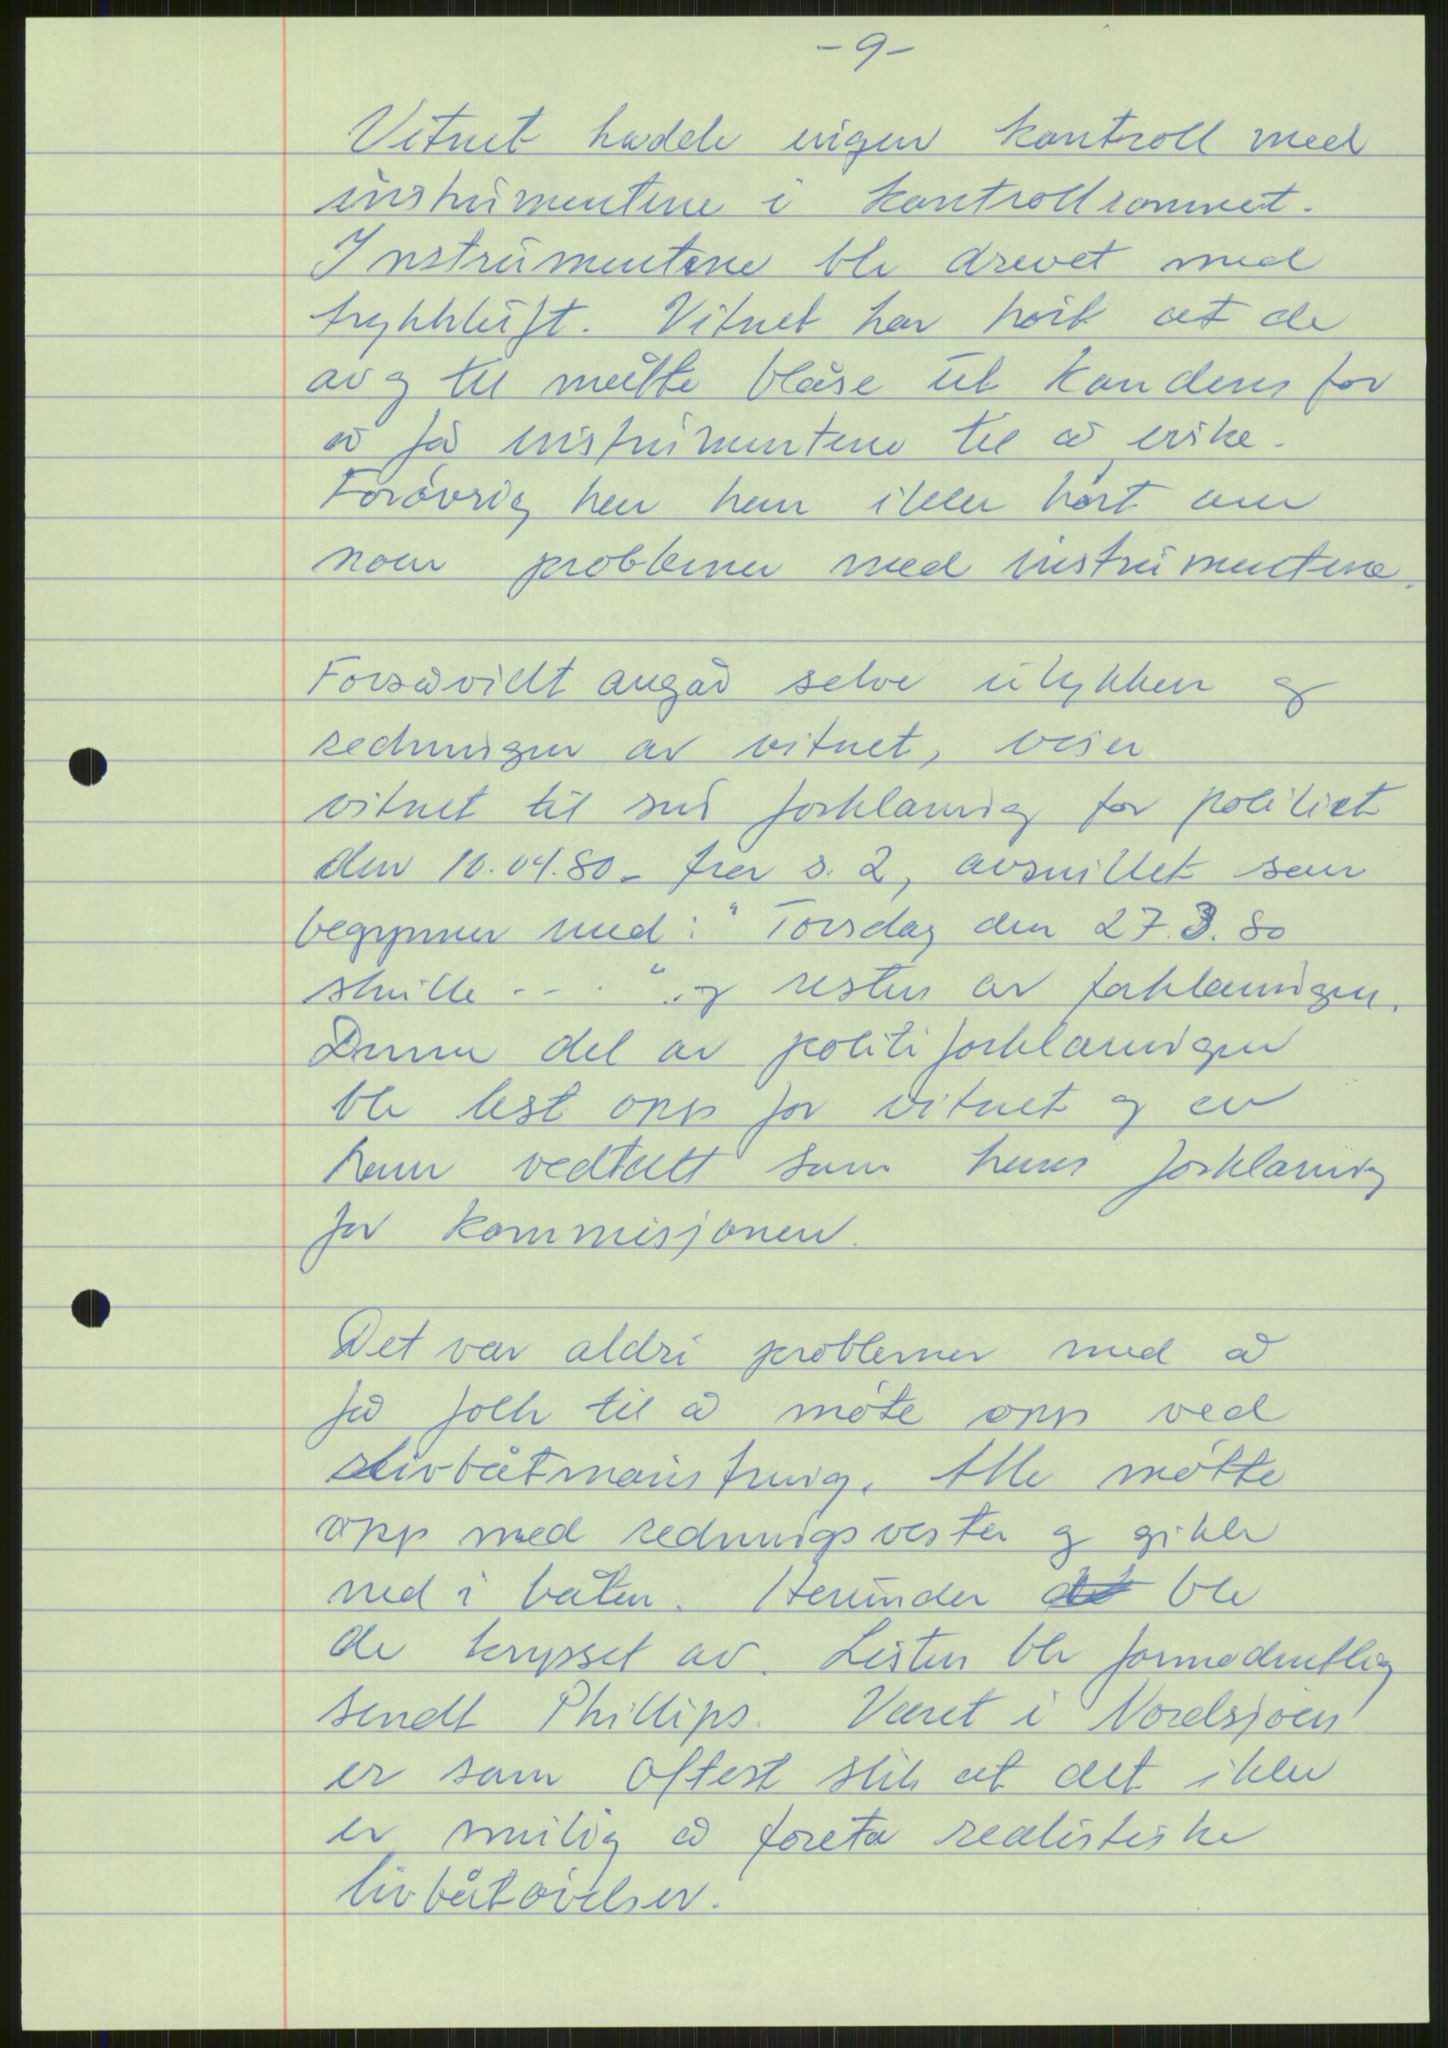 -9-
Vitnet hadde ingen kontroll med
instrumentene i kontrollrommet.
Instrumentene ble drevet med
trykkluft. Vitnet har hört at de
av og til måtte blåse ut kondens for
å få instrumentene til å virke.
Forövrig har han ikke hört om
noen problemer med instrumentene.
Forsåvidt angår selve ulykken og
redningen av vitnet, viser
vitnet til sin forklaring for politiet
den 10.04.80 - fra s. 2, avsnittet som
begynner med: "Torsdag den 27.3.80
skulle - - . " og resten av forklaringen.
Denne del av politiforklaringen
ble lest opp for vitnet og er
han vedtatt som hans forklaring
for kommisjonen.
Det var aldri problemer med å
få folk til å möte opp ved
livbåtmönstring. Alle mötte
opp med redningsvester og gikk
ned i båten. Herunder det ble
de krysset av. Listen ble formodentlig
sendt Phillips. Været i Nordsjöen
er som oftest slik at det ikke
er mulig å foreta realistiske
livbåtövelser.